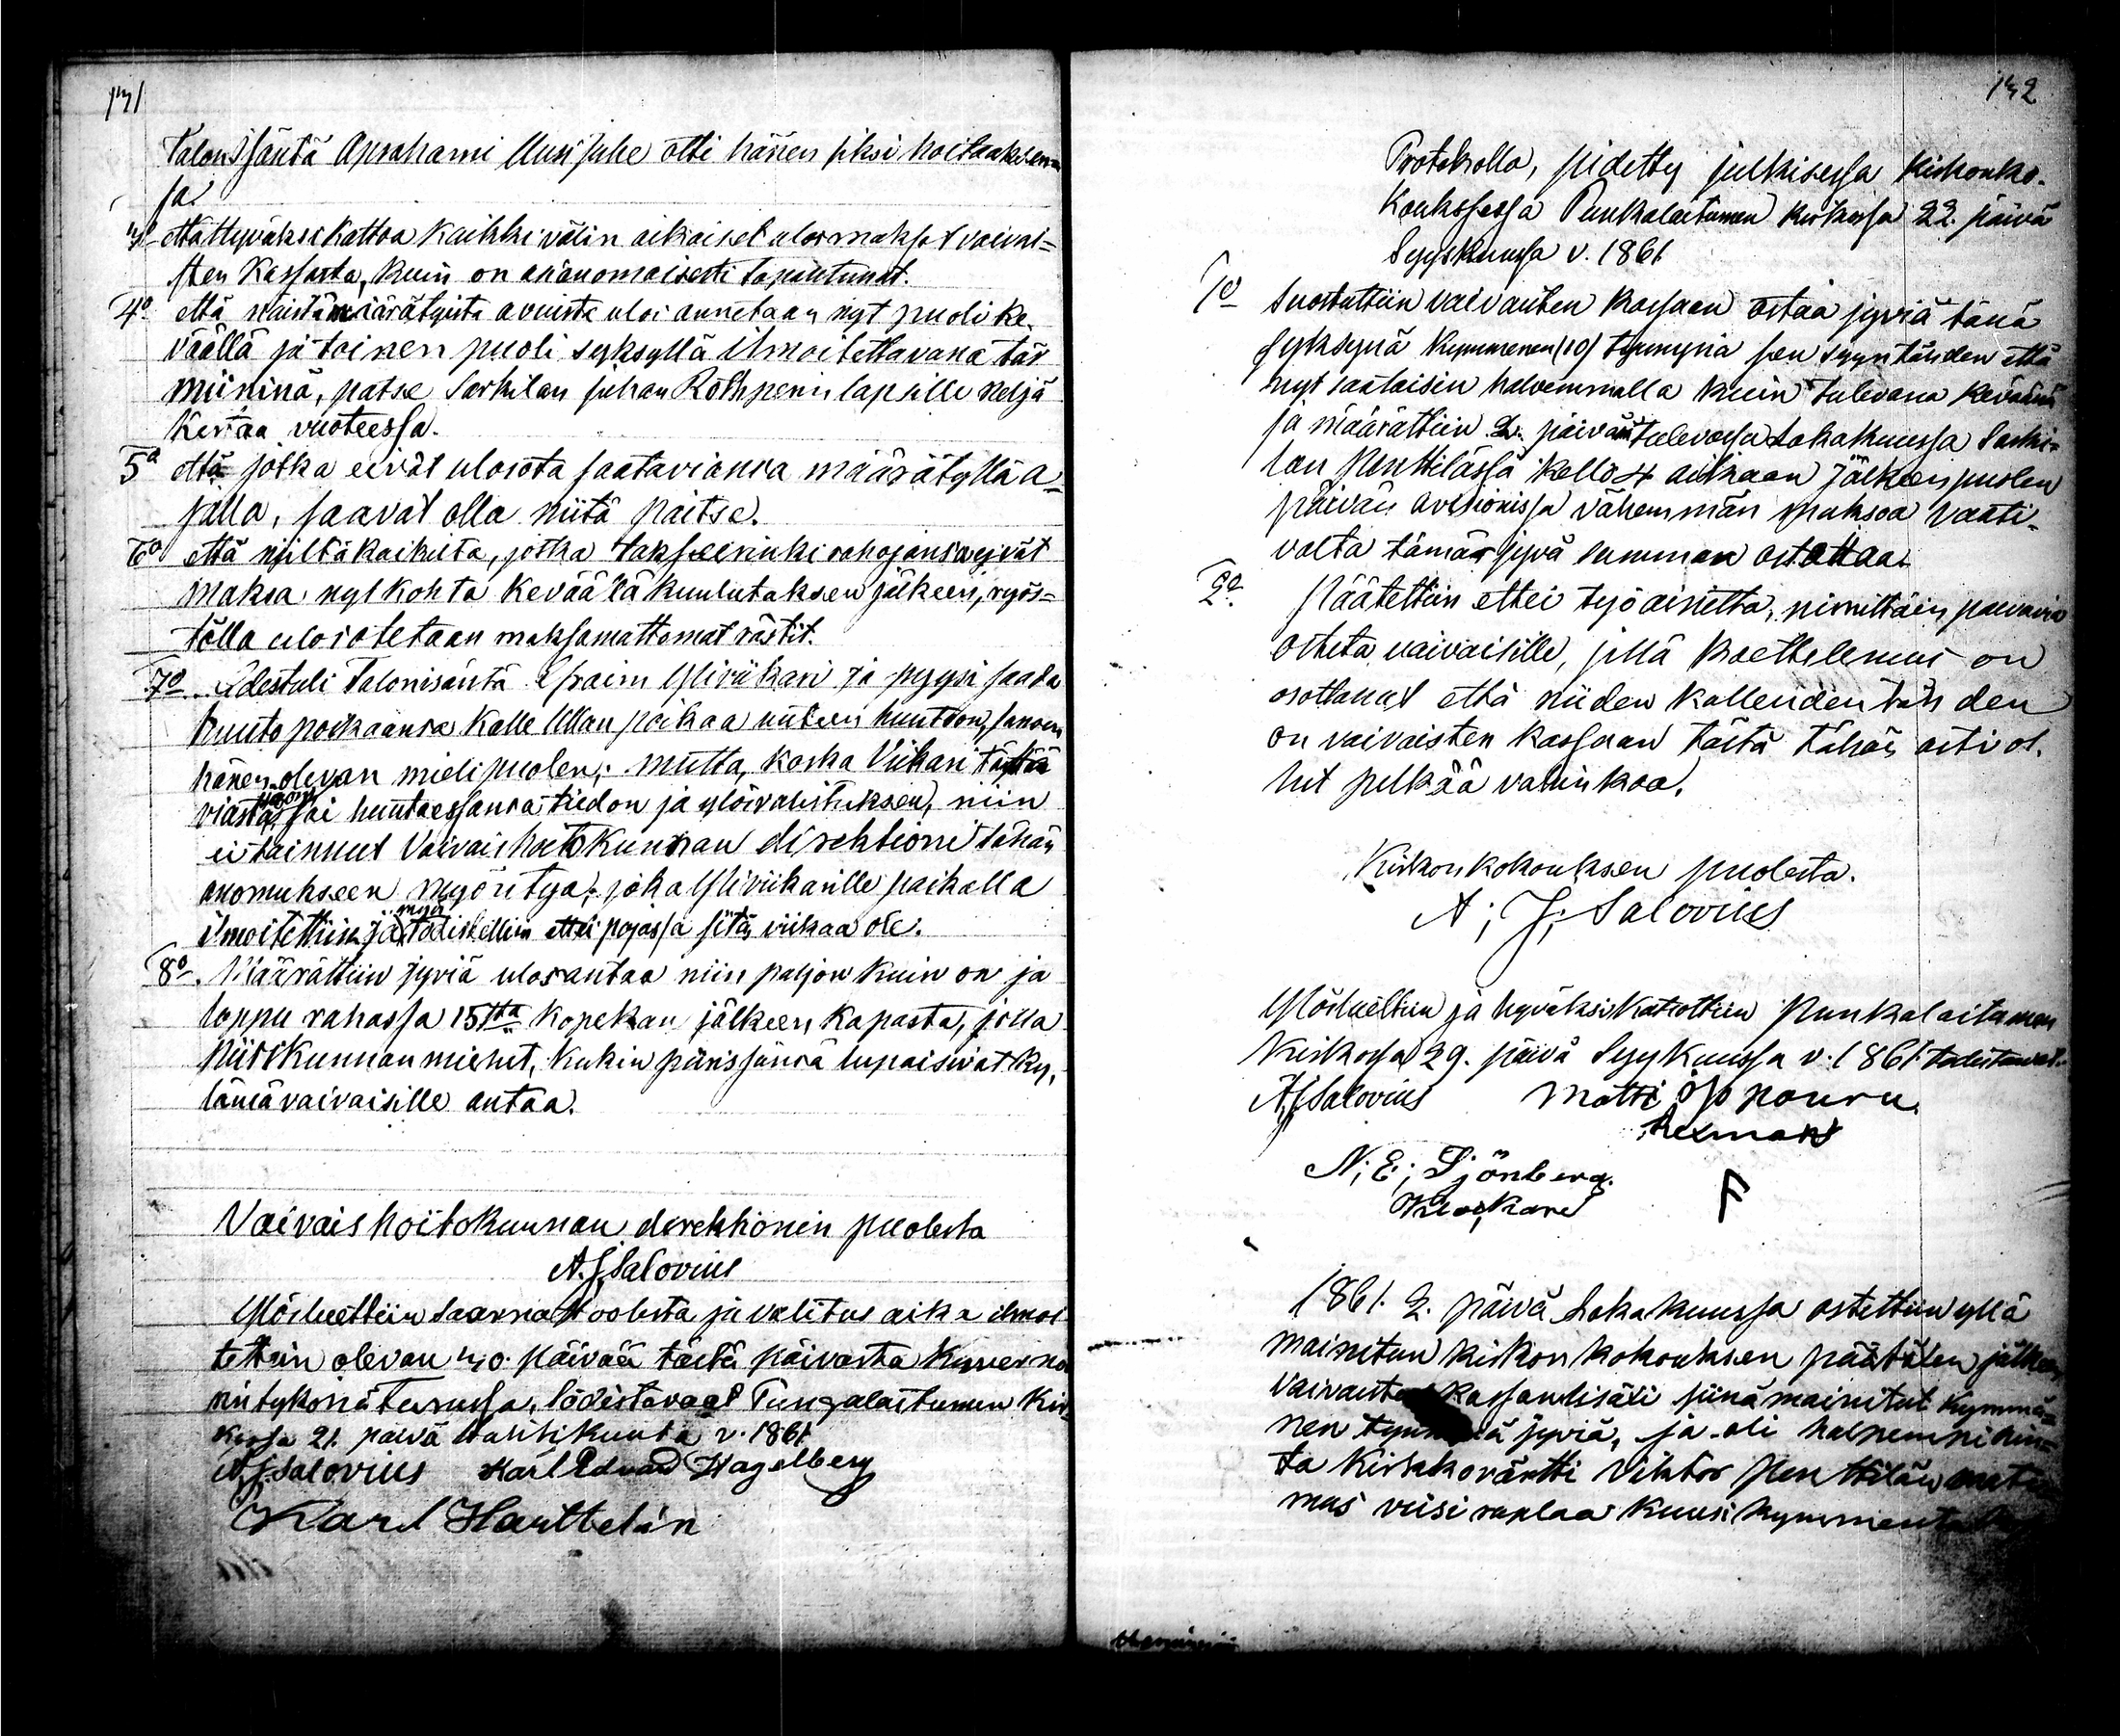 131
Talonisäntä Aprahami Uusi Juhe otti hänen siksi hoitaaksen=
sa
3o että hyväksi kattoa kaikki välin aikaiset ulosmaksot vaivai=
sten kassasta, kuin on asianomaisesti tapahtunut.
4o että näistä määrätyistä avuista ulos annetaan nyt puoli ke=
väällä ja toinen puoli syksyllä ilmoitettavana tär
miininä, patse Sarkilan Juhan Rothpenin lapsille neljä
kertaa vuoteessa.
5o että jotka eivät ulosota saataviansa määrätyllä a=
jalla, saavat olla niitä paitse.
6o että niiltä kaikilta, jotka takseerinki rahojansa eivät
maksa nyt kohta kevää lä kuulutuksen jälkeen, ryös=
töllä ulosotetaan maksamattomat rästit.
7o Edestuli Talonisäntä Efraim Yliviikari ja pyysi saada
huuto poikaansa Kalle Ullan poikaa uuteen huutoon, sanoen
hänen olevan mielipuolen; mutta, koska Viikari tästä
viasta sai huutaessansa tiedon ja ylösvalistuksen, niin
ei tainnut Vaivaishoitokunnan direktioni tähän
anomukseen myöntyä, joka Yliviikarille paikalla
ilmoitettiin, ja myös todistettiin ettei pojassa sitä viikaa ole.
8o. Määrättiin jyviä ulosantaa niin paljon kuin on ja
loppu rahassa 15sta kopekan jälkeen kapasta, jolla
Piiskunnan miehet, kukin piirissänsä lupaisivat ky=
länsä vaivaisille antaa.
Vaivaishoitokunnan direktionin puolesta
A. J. Salovius
Ylösluettiin Saarna stoolista ja valitus aika ilmoi
tettiin olevan 30. päivää tästä päivästä Kuverno
rin tykönä Turussa, todistavaat Pungalaitumen Kir
kossa 21. päivä Huhtikuuta v. 1861
A. J. Salovius Karl Edvard Hagelberg
Karl Harttelin
132
Protokolla, pidetty julkisessa kirkonko=
kouksessa Punkalaitumen kirkossa 22. päivä
Syyskuussa v. 1861
1o Suostuttiin vaivaisten kassaan ostaa jyviä tänä
syksynä kymmenen (10) tynnyriä sen syyn tähden että
nyt saataisiin halvemmalla kuin tulevana keväänä
ja määrättiin 2. päivä tulevassa Lokakuussa Sarki=
lan Penttilässä kello 4 aikaan jälkeen puolen
päivän auktionissa vähemmän maksoa vaati=
valta tämän jyvä summan ostattaa.
2o. Päätettiin ettei työaisetta, nimittäin pelvavia
osteta vaivaisille, sillä koettelemus on
osottanut että niiden kallenden täh den
on vaivaisten kassaan tästä tähän asti ol=
lut pelkää vahinkoa.
Kirkonkokouksen puolesta.
A; J; Salovius
Ylösluettiin ja hyväksi katsottiin Punkalaitumen
kirkossa 29. päivä Syyskuussa v. 1861 todistavat.
A. J. Salovius Matti Iso Nouru.
herman
N; E; Sjönberg.
Kluckare
1861. 2. päivä Lokakuussa ostettiin yllä
mainitun kirkon kokouksen päätöksen jälkeen
vaivaisten kassan lisäksi siinä mainitut kymme=
nen tynnyriä jyviä, ja oli halvempi hin=
ta Kirkkoväärtti Viktor Penttilän
mus viisi ruplaa kuusi kymmentä